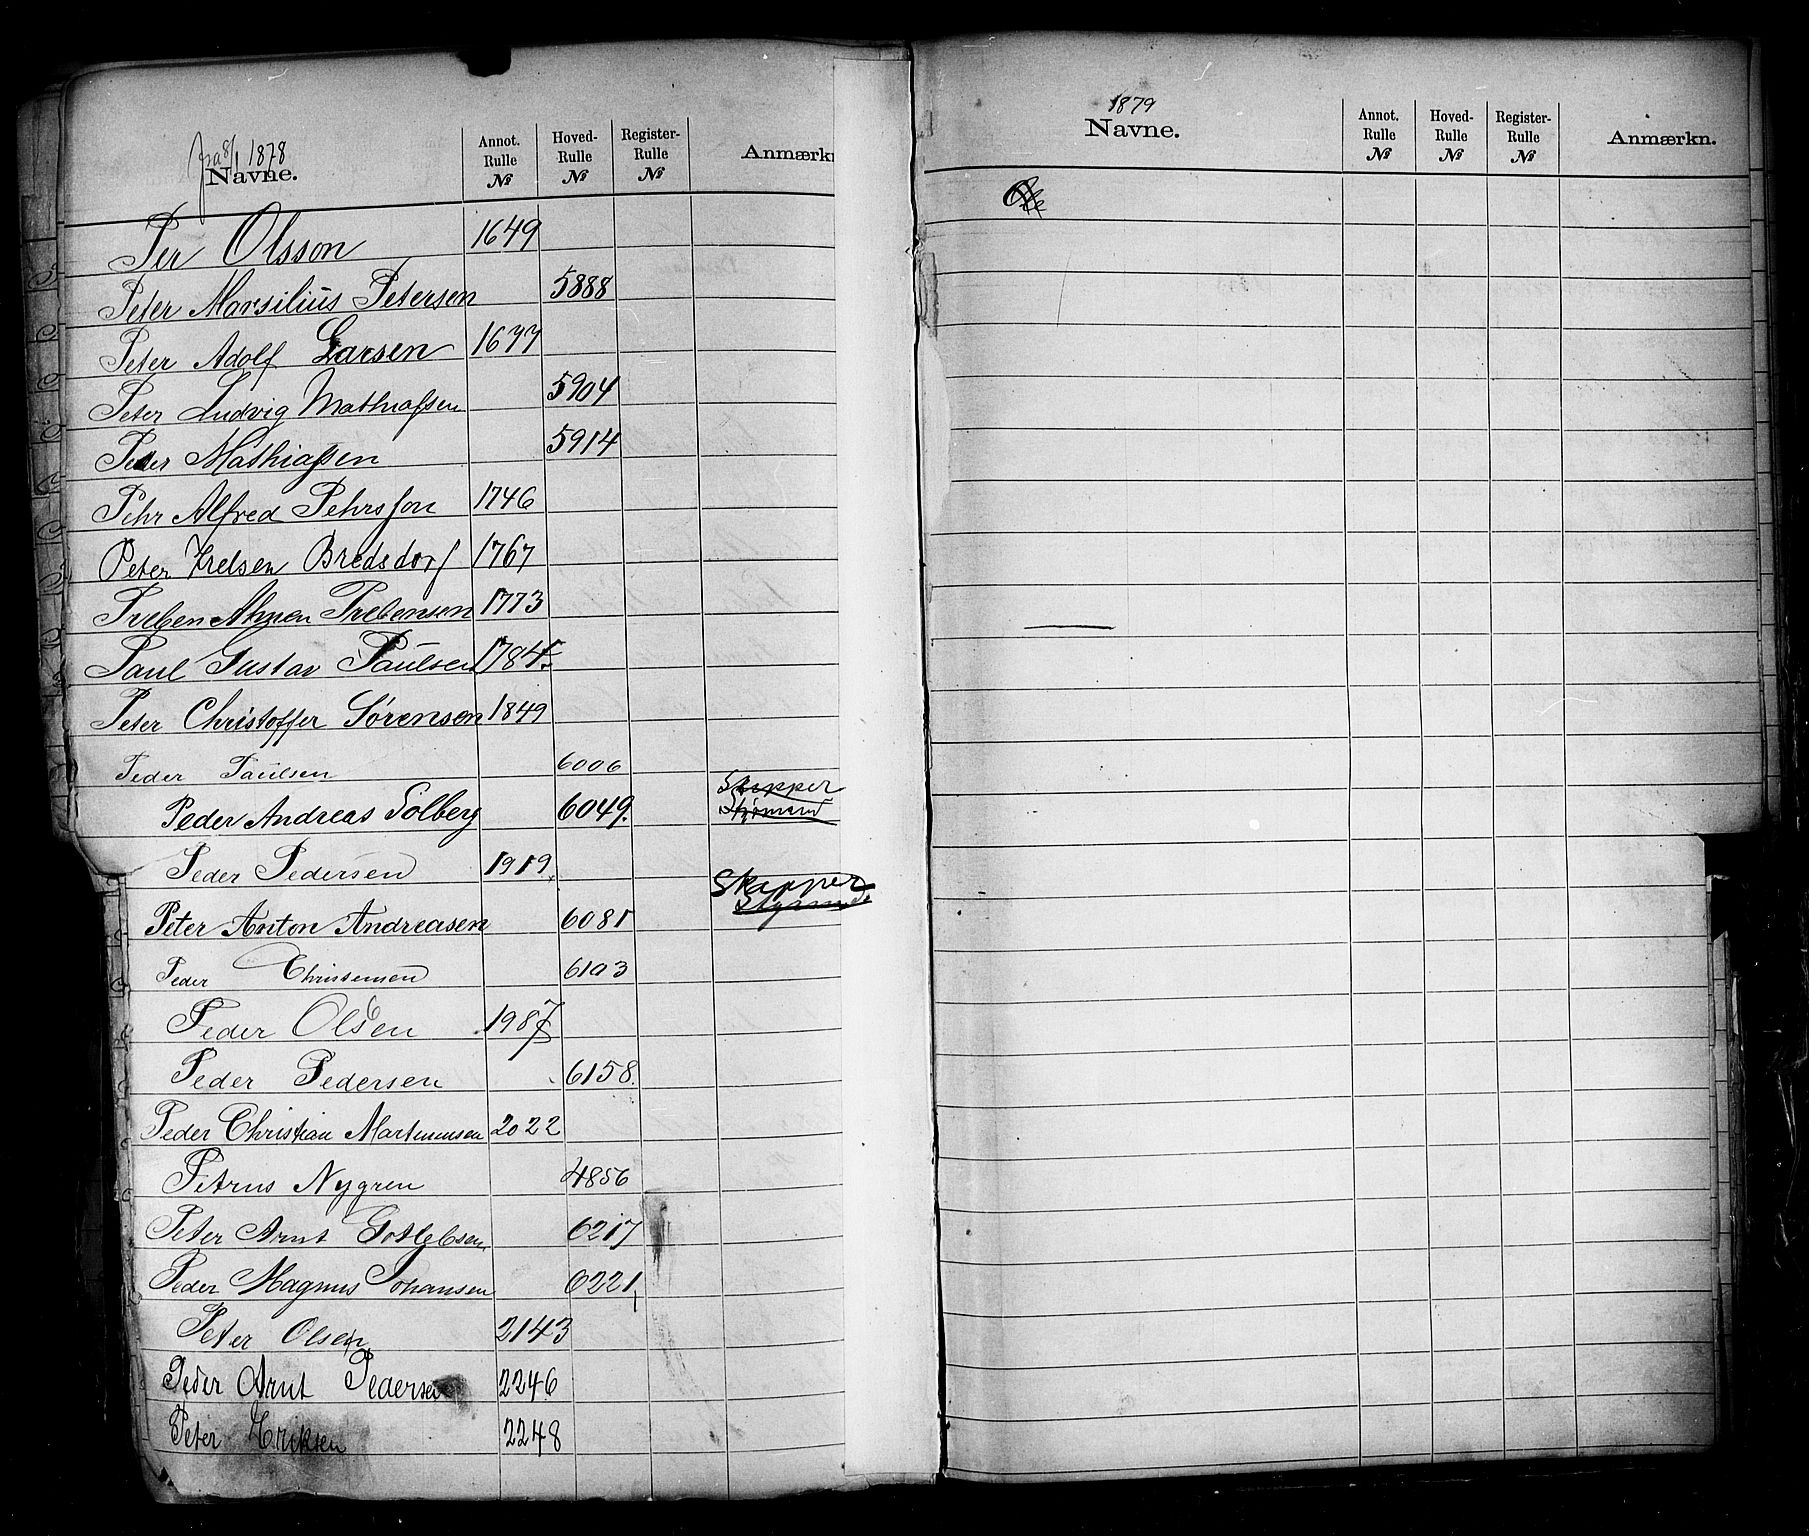 fra 8/1 1878
Navne.
Annot. Rulle №
Hoved- Rulle №
Register- Rulle №
Anmærkn
Per Olsson 1649
Peter Marsilius Petersen 5888
Peter Adolf Larsen 1677
Peter Ludvig Mathiassen 5904
Peder Mathiassen 5914
Pehr Alfred Pehrsson 1746
Peter Bredsdorf 1767
Preben Prebensen 1773
Paul Gustav Paulsen 1784
Peter Christoffer Sørensen 1849
Peder Paulsen 6006
Peder Andreas Solberg 6049. Skipper Styrmand
Peder Pedersen 1919.
Peter Anton Andreasen 6081 Skipper
Peder Christensen 6103
Peder Olsen 1987
Peder Pedersen 6158.
Peder Christian Martinussen 2022
Petrus Nygren 4856
Peter Arnt Gotlebsen 6217
Peder Magnus Johansen 6221
Peter Olsen 2143
Peder Arnt Pedersen 2246
Peter Eriksen 2248
1879
Navne.
Annot. Rulle №
Hoved- Rulle №
Register- Rulle №
Anmærkn.
Ole